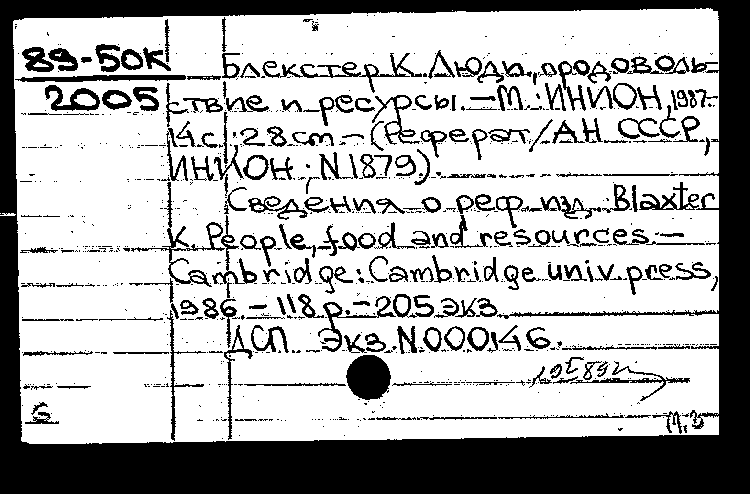 89-50К
2005
Блекстер К. Люди, продоволь-
ствие и ресурсы. – М.: ИНИОН, 1987.-
14с.; 28cm. – (Реферат/АН СССР,
ИНИОН; N1879).
Сведения о реф. изд.: Blaxter
K. People, food and resources. –
Cambridge: Cambridge univ. press,
1986. – 118 p. – 205 экз.
ДСП Экз. N000146.
б